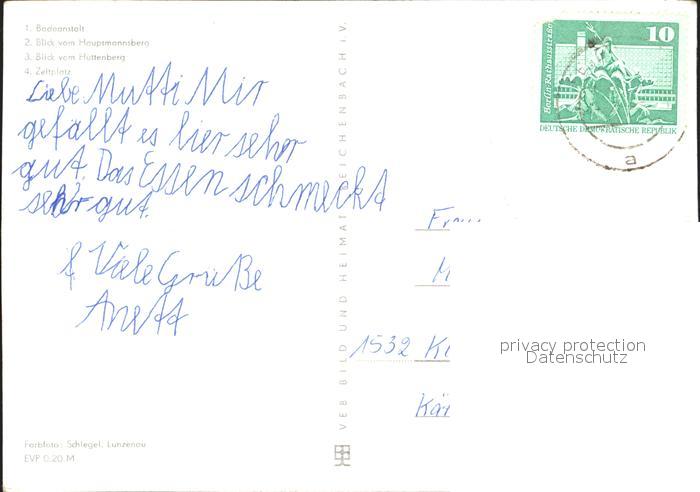 1. Badeanstalt
2. Blick vom Hauptmannsberg
3. Blick vom Hüttenberg
4. Zeltplatz
Liebe Mutti Mir
gefällt es hier sehr
gut. Das Essen schmeckt
sehr gut.
Viele Grüße
Anett
Farbfoto: Schlegel, Lunzenau
EVP 0.20 M
VEB BILD UND HEIMAT REICHENBACH I.V.
Berlin-Rathausstraße
10
DEUTSCHE DEMOKRATISCHE REPUBLIK
a
1532 Kl
privacy protection
Datenschutz